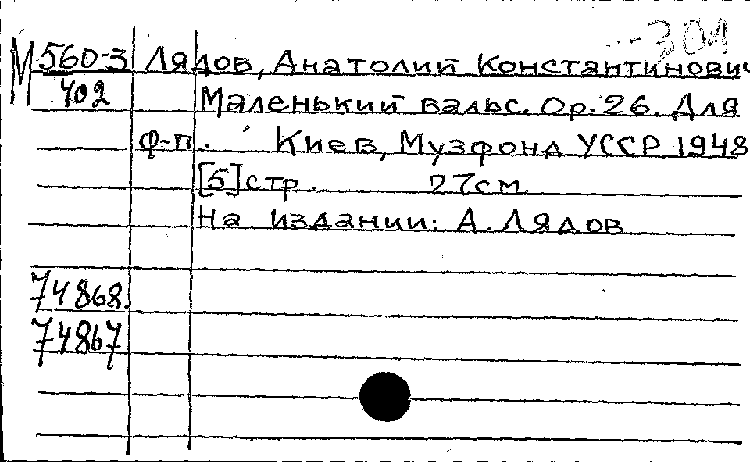 304
М 560-3 Лядов, Анатолий Константинович
402 Маленький вальс. Op. 26. Для
ф-п. Киев, Музфонд УССР 1948
[5] стр. 27см
На издании: А. Лядов
74868.
74867